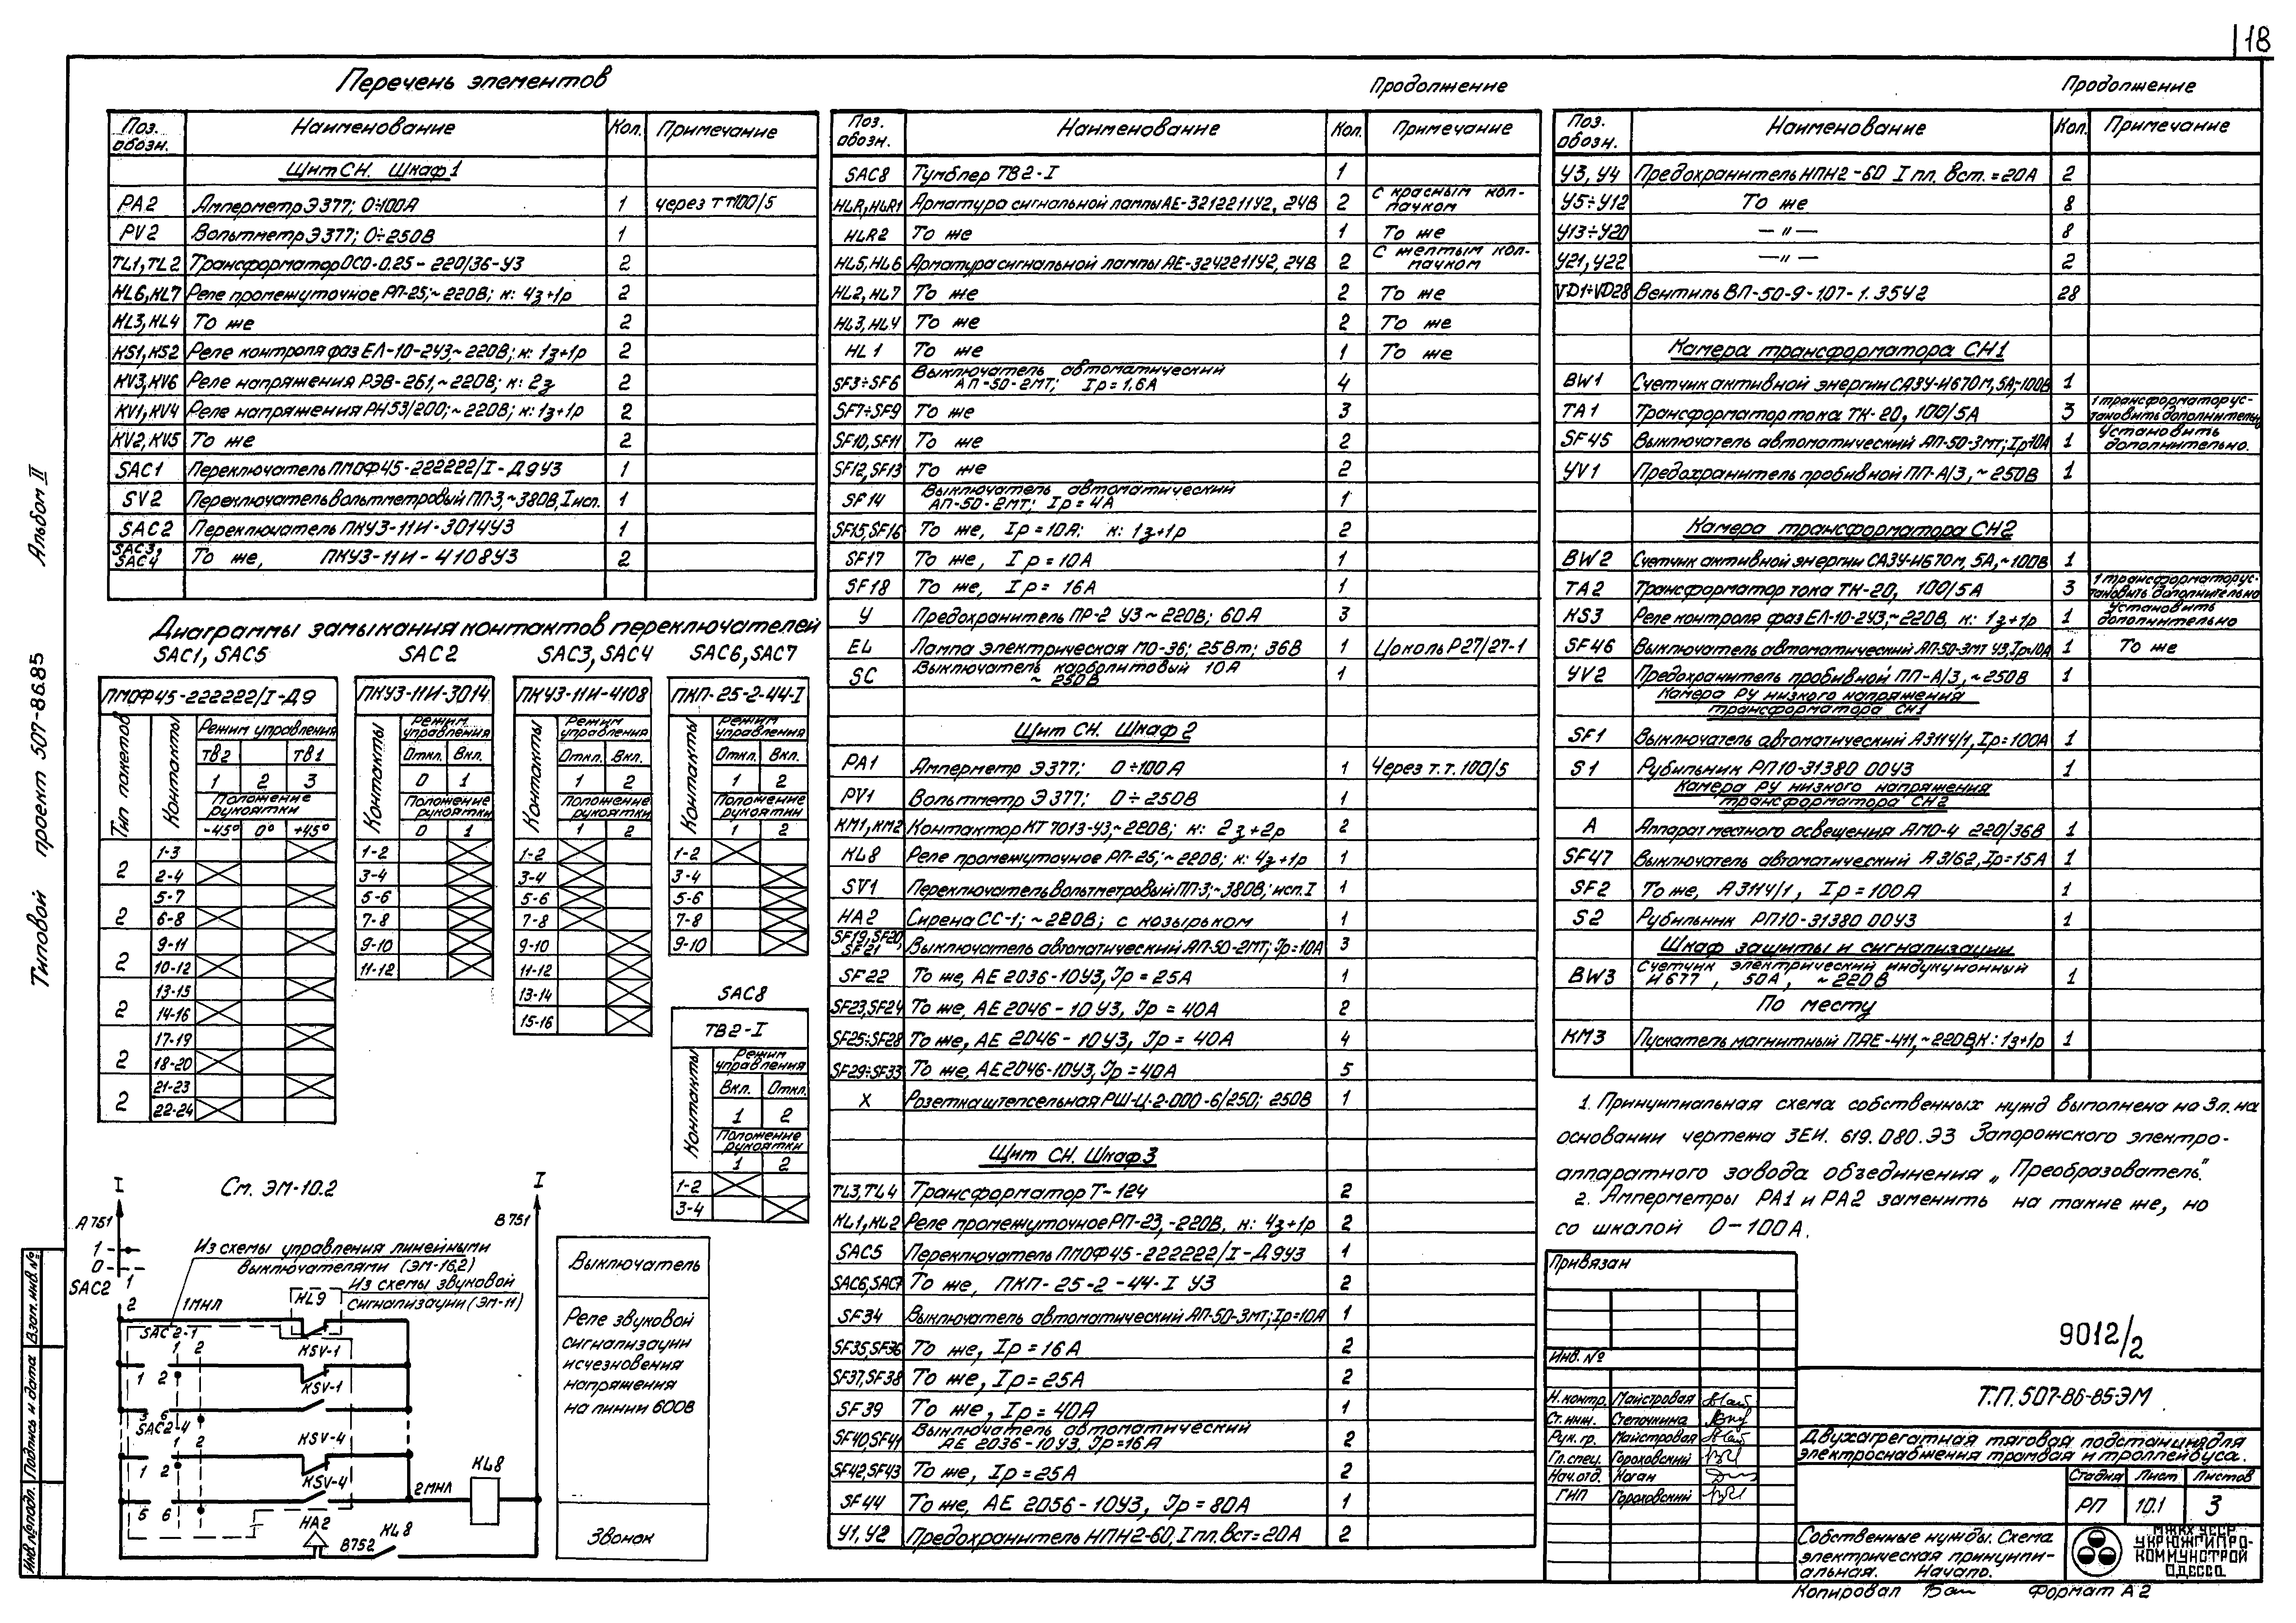 18
Перечень элементов
Поз. обозн. Наименование Кол. Примечание
Щит СН. Шкаф 1
РА2 Амперметр Э377; 0÷100А 1 через тт100/5
PV2 Вольтметр Э377; 0÷250В 1
TL1, TL2 Трансформатор ОСО-0.25-220/36-У3 2
KL6, KL7 Реле промежуточное РП-25; ~220В; к: 4з+1р 2
KL3, KL4 То же 2
KS1, KS2 Реле контроля фаз ЕЛ-10-2У3, ~220В; к: 1з+1р 2
KV3, KV6 Реле напряжения РЭВ-261, ~220В; к: 2з 2
KV1, KV4 Реле напряжения РН53/200; ~220В; к: 1з+1р 2
KV2, KV5 То же 2
SAC1 Переключатель ПМОФ45-222222/I-Д9У3 1
SV2 Переключатель вольтметровый ПП-3, ~380В, I исп. 1
SAC2 Переключатель ПКУ3-11И-3014У3 1
SAC3, SAC4 То же, ПКУ3-11И-4108У3 2
Диаграммы замыкания контактов переключателей
SAC1, SAC5 SAC2 SAC3, SAC4 SAC6, SAC7
ПМОФ45-222222/I-Д9
Тип пакетов Контакты Режим управления
ТВ2 ТВ1
1 2 3
Положение рукоятки
-45° 0° +45°
2 1-3
2-4
2 5-7
6-8
2 9-11
10-12
2 13-15
14-16
2 17-19
18-20
2 21-23
22-24
ПКУ3-11И-3014
Контакты Режим управления
Откл. Вкл.
0 1
Положение рукоятки
0 1
1-2
3-4
5-6
7-8
9-10
11-12
ПКУ3-11И-4108
Контакты Режим управления
Откл. Вкл.
1 2
Положение рукоятки
1 2
1-2
3-4
5-6
7-8
9-10
11-12
13-14
15-16
ПКП-25-2-44-I
Контакты Режим управления
Откл. Вкл.
1 2
Положение рукоятки
1 2
1-2
3-4
5-6
7-8
9-10
SAC8
ТВ2-I
Контакты Режим управления
Вкл. Откл.
1 2
Положение рукоятки
1 2
1-2
3-4
См. ЭМ-10.2
I I
А751 В751
1
0
SAC2 1
2
Из схемы управления линейными
выключателями (ЭМ-16,2)
Из схемы звуковой
сигнализации (ЭМ-11)
1МНЛ KL9
SAC2-1
1 2 KSV-1
1 2 KSV-1
5 6
SAC2-4
1 2 KSV-4
1 2 KSV-4
5 6
2МНЛ KL8
HA2 В752 KL8
Выключатель
Реле звуковой
сигнализации
исчезновения
напряжения
на линии 600В
Звонок
Продолжение
Поз. обозн. Наименование Кол. Примечание
SAC8 Тумблер ТВ2-I 1
HLR, HLR1 Арматура сигнальной лампы АЕ-3212211У2, 24В 2 С красным колпачком
HLR2 То же 1 То же
HL5, HL6 Арматура сигнальной лампы АЕ-3242211У2, 24В 2 С желтым колпачком
HL2, HL7 То же 2 То же
HL3, HL4 То же 2 То же
HL1 То же 1 То же
SF3÷SF6 Выключатель автоматический АП-50-2МТ; Iр=1,6А 4
SF7÷SF9 То же 3
SF10, SF11 То же 2
SF12, SF13 То же 2
SF14 Выключатель автоматический АП-50-2МТ; Iр=4А 1
SF15, SF16 То же, Iр=10А; к: 1з+1р 2
SF17 То же, Iр=10А 1
SF18 То же, Iр=16А 1
У Предохранитель ПР-2 У3 ~220В; 60А 3
EL Лампа электрическая МО-36; 25Вт; 36В 1 Цоколь Р27/27-1
SC Выключатель карболитовый 10А ~250В 1
Щит СН. Шкаф 2
РА1 Амперметр Э377; 0÷100А 1 Через т.т. 100/5
PV1 Вольтметр Э377; 0÷250В 1
КМ1, КМ2 Контактор КТ7013-У3, ~220В; к: 2з+2р 2
KL8 Реле промежуточное РП-25; ~220В; к: 4з+1р 1
SV1 Переключатель вольтметровый ПП-3; ~380В; исп. I 1
HA2 Сирена СС-1; ~220В; с козырьком 1
SF19, SF20, SF21 Выключатель автоматический АП-50-2МТ; Iр=10А 3
SF22 То же, АЕ 2036-10У3, Iр=25А 1
SF23, SF24 То же, АЕ 2046-10У3, Iр=40А 2
SF25÷SF28 То же, АЕ 2046-10У3, Iр=40А 4
SF29÷SF33 То же, АЕ2046-10У3, Iр=40А 5
X Розетка штепсельная РШ-Ц-2-000-6/250; 250В 1
Щит СН. Шкаф 3
TL3, TL4 Трансформатор Т-124 2
KL1, KL2 Реле промежуточное РП-23, -220В, к: 4з+1р 2
SAC5 Переключатель ПМОФ45-222222/I-Д9У3 1
SAC6, SAC7 То же, ПКП-25-2-44-I У3 2
SF34 Выключатель автоматический АП-50-3МТ; Iр=10А 1
SF35, SF36 То же, Iр=16А 2
SF37, SF38 То же, Iр=25А 2
SF39 То же, Iр=40А 1
SF40, SF41 Выключатель автоматический АЕ 2036-10У3, Iр=16А 2
SF42, SF43 То же, Iр=25А 2
SF44 То же, АЕ 2056-10У3, Iр=80А 1
У1, У2 Предохранитель НПН2-60, I пл. вст=20А 2
Продолжение
Поз. обозн. Наименование Кол. Примечание
У3, У4 Предохранитель НПН2-60 I пл. вст.=20А 2
У5÷У12 То же 8
У13÷У20 —〃— 8
У21, У22 —〃— 2
VD1÷VD28 Вентиль ВЛ-50-9-1,07-1.35У2 28
Камера трансформатора СН1
BW1 Счетчик активной энергии СА3У-И670М, 5А, ~100В 1
TA1 Трансформатор тока ТК-20, 100/5А 3 1 трансформатор установить дополнительно
SF45 Выключатель автоматический АП-50-3МТ; Iр10А 1 Установить дополнительно.
YV1 Предохранитель пробивной ПП-А/3, ~250В 1
Камера трансформатора СН2
BW2 Счетчик активной энергии СА3У-И670М, 5А, ~100В 1
TA2 Трансформатор тока ТК-20, 100/5А 3 1 трансформатор установить дополнительно
KS3 Реле контроля фаз ЕЛ-10-2У3, ~220В, к: 1з+1р 1 Установить дополнительно
SF46 Выключатель автоматический АП-50-3МТ У3, Iр=10А 1 То же
YV2 Предохранитель пробивной ПП-А/3, ~250В 1
Камера РУ низкого напряжения
трансформатора СН1
SF1 Выключатель автоматический А3114/1, Iр=100А 1
S1 Рубильник РП10-31380 00У3 1
Камера РУ низкого напряжения
трансформатора СН2
А Аппарат местного освещения АМО-4 220/36В 1
SF47 Выключатель автоматический А3162, Iр=15А 1
SF2 То же, А3114/1, Iр=100А 1
S2 Рубильник РП10-31380 00У3 1
Шкаф защиты и сигнализации
BW3 Счетчик электрический индукционный И677, 50А, ~220В 1
По месту
КМ3 Пускатель магнитный ПАЕ-411, ~220В, К: 1з+1р 1
1. Принципиальная схема собственных нужд выполнена на 3л. на
основании чертежа 3ЕИ. 619. 080. Э3 Запорожского электро-
аппаратного завода объединения „Преобразователь".
2. Амперметры РА1 и РА2 заменить на такие же, но
со шкалой 0-100А.
Привязан
Инв. №
9012/2
Н. контр. Майстровая
Ст. инж. Степочкина
Рук. гр. Майстровая
Гл. спец. Гороховский
Нач. отд. Коган
ГИП Гороховский
Т.П. 507-86-85-ЭМ
Двухагрегатная тяговая подстанция для
электроснабжения трамвая и троллейбуса.
Стадия Лист Листов
РП 10.1 3
Собственные нужды. Схема
электрическая принципи-
альная. Начало.
МЖКХ УССР
УКРЮЖГИПРО-
КОММУНСТРОЙ
ОДЕССА
Копировал Формат А2
Типовой проект 507-86.85 Альбом II
Инв. № подл. Подпись и дата Взам. инв. №